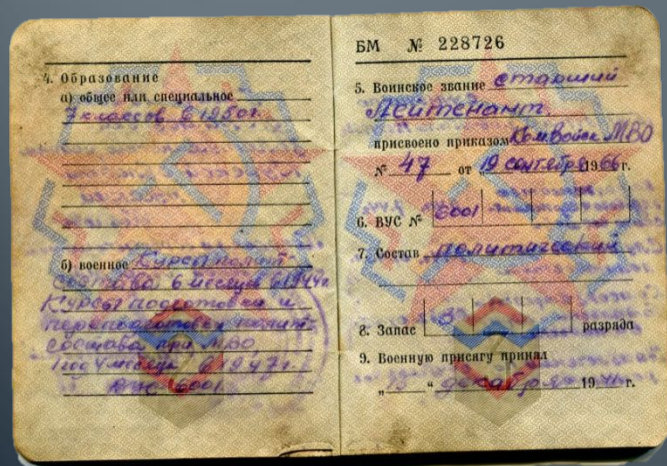 4. Образование
а) общее или специальное
7 классов в 1950г.
б) военное Курсы полит
состава 6 месяцев в 1944г.
Курсы подготовки и
переподготовки полит-
состава при МВО
1 год 4 месяца в 1947г.
ВУС 6001
БМ № 228726
5. Воинское звание старший
Лейтенант
присвоено приказом Комвойск МВО
№ 47 от 19 сентября 1966 г.
6. ВУС № 6001
7. Состав политический
8. Запас 3 разряда
9. Военную присягу принял
" " декабря 1941 г.